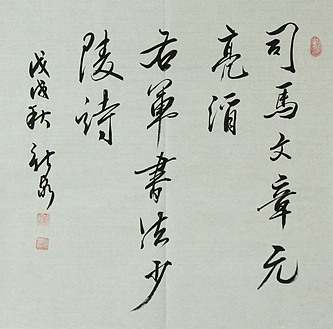 司馬文章元
亮酒
右軍書法少
陵诗
戊戌秋